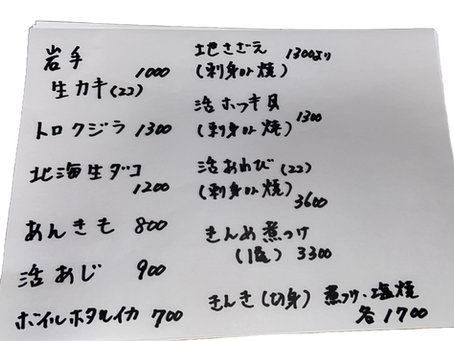 岩手
生カキ(2コ) 1000
トロクジラ 1300
北海生ダコ
1200
あんきも 800
活あじ 900
ボイルホタルイカ 700
地さざえ 1300より
(刺身or焼)
活ホッキ貝
(刺身or焼) 1300
活あわび(2コ)
(刺身or焼)
3600
きんめ煮つけ
(1尾) 3300
きんき(切身) 煮つけ・塩焼
各1700